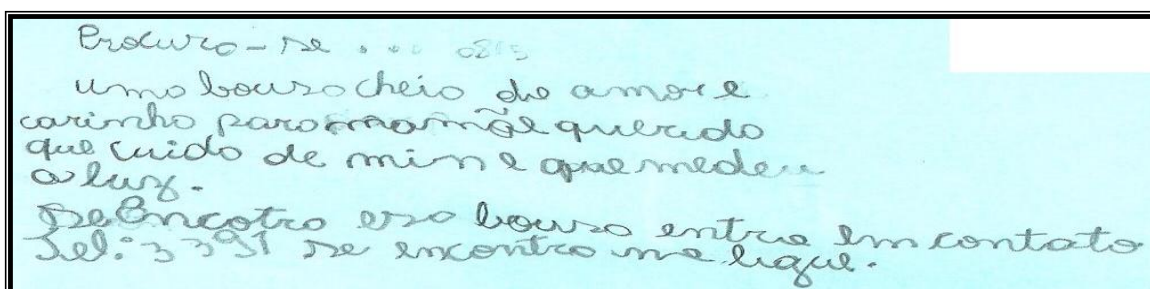 Procura-se ...
uma bousa cheia de amor e
carinho para mamãe querida
que cuida de min e que medeu
a luz.
se Encotra esa bousa entra em contato
Tel: 3391 se encontra me ligue.